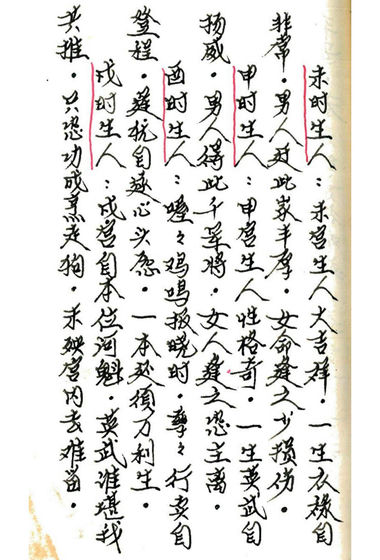 未时生人：未宫生人大吉祥．一生衣禄自
非常．男人得此家丰厚．女命逢之少损伤．
申时生人：申宫生人性格奇．一生英武自
扬威．男人得此千军将．女人逢之恐主离．
酉时生人：々鸡鸣报晓时．孳々行卖自
登程．自遂心头愿．一本必须万利生．
戌时生人：戌宫自本位河魁．英武谁堪我
共推．只恐功成烹走狗．未殃宫内去难留．